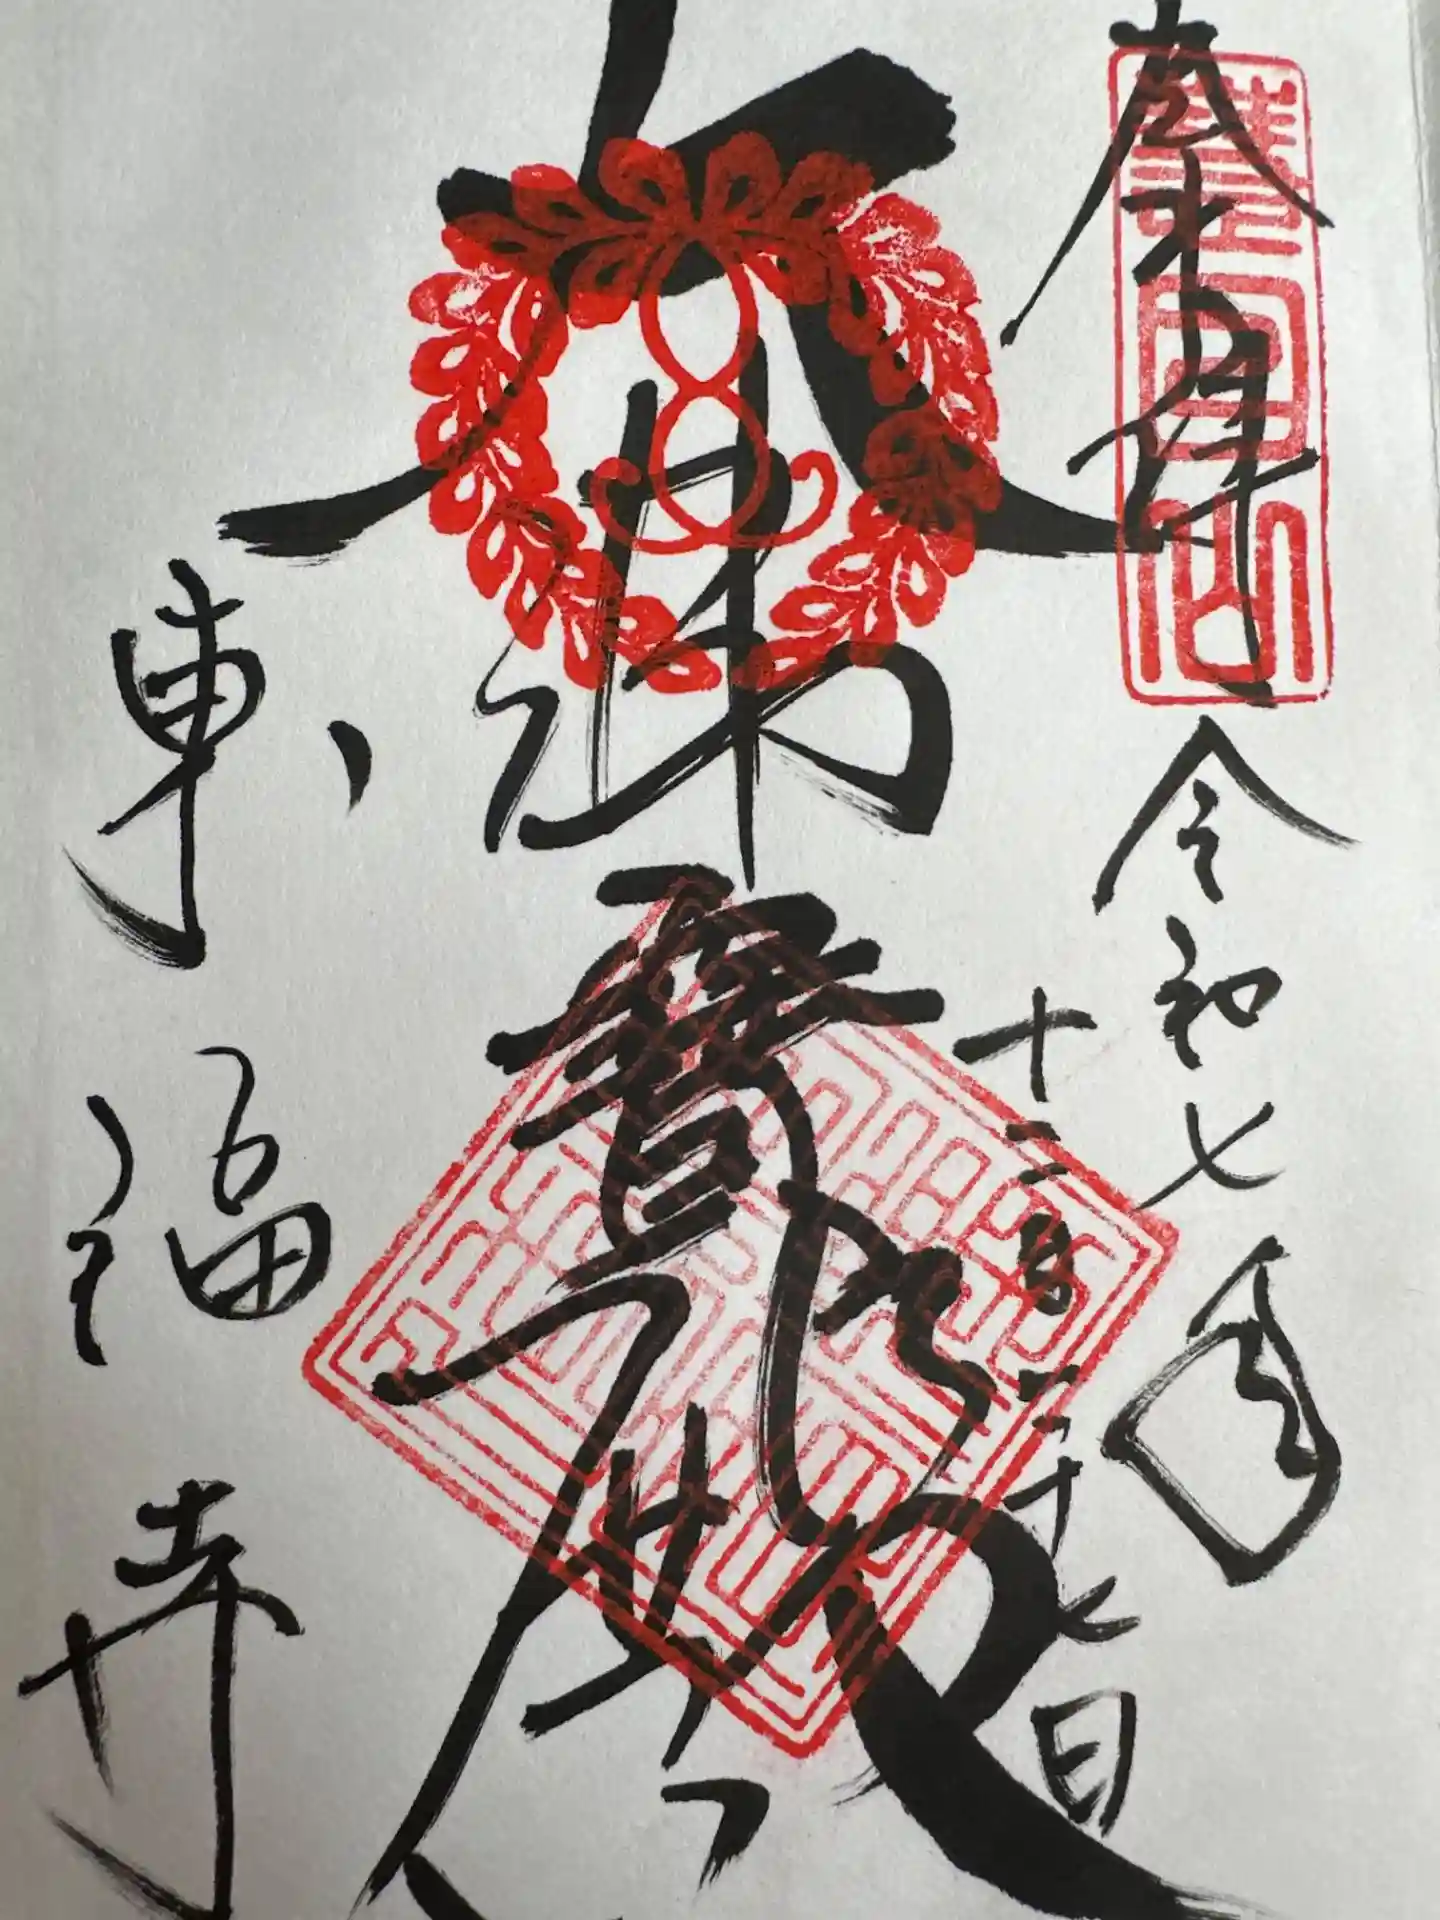 奉拝
令和七年
十二月二十七日
大佛寶殿
東福寺